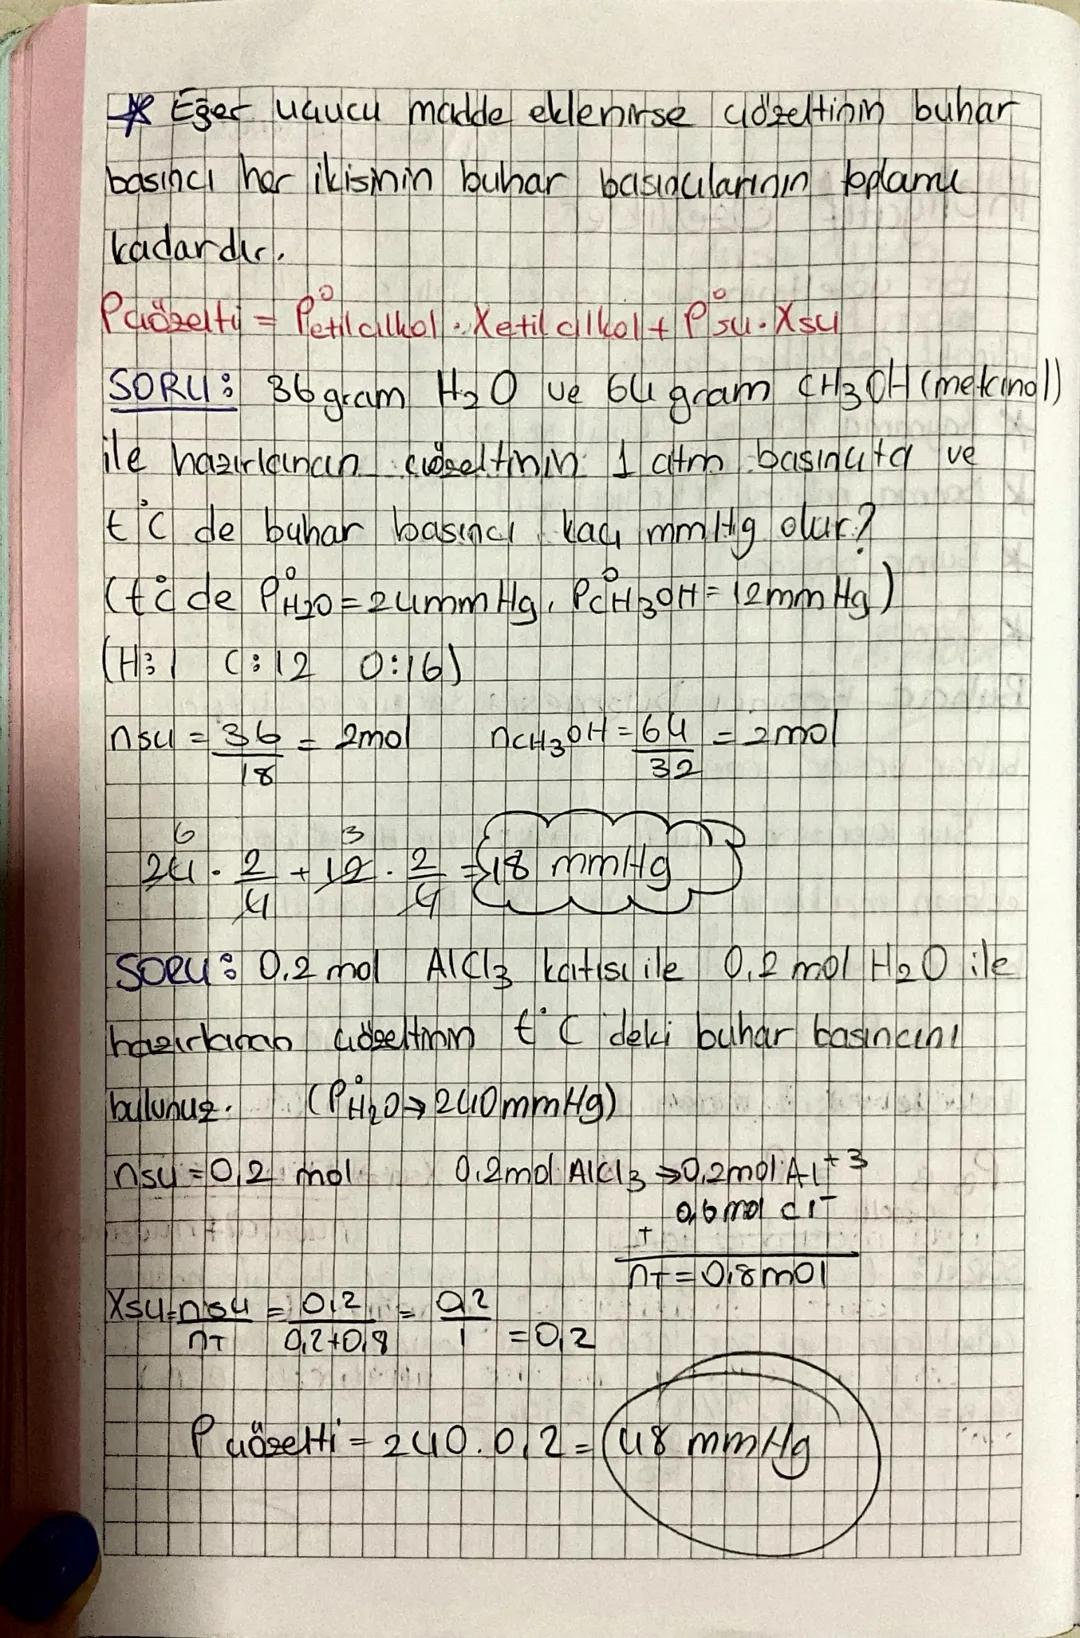 * Eğer uçucu madde eklenirse çözeltinin buhar
basıncı her ikisinin buhar basınçlarının toplamı
kadardır.
Pçözelti = P°etil alkol . Xetil alkol + P°su . Xsu
SORU: 36 gram H₂O ve 64 gram CH₃OH (metanol)
ile hazırlanan çözeltinin 1 atm basınçta ve
t°C de buhar basıncı kaç mmHg olur?
(t°C de P°H₂O = 24mmHg, P°CH₃OH = 12mmHg)
(H:1 C:12 O:16)
nsu = 36/18 = 2mol nCH₃OH = 64/32 = 2mol
6 3
24 . 2/4 + 12 . 2/4 = 18 mmHg
SORU: 0,2 mol AlCl₃ katısı ile 0,2 mol H₂O ile
hazırlanan çözeltinin t°C deki buhar basıncını
bulunuz. (P°H₂O → 240mmHg)
nsu = 0,2 mol 0,2mol AlCl₃ → 0,2mol Al⁺³
0,6 mol Cl⁻
+
nT = 0,8mol
Xsu = nsu/nT = 0,2/0,2+0,8 = 0,2/1 = 0,2
Pçözelti = 240 . 0,2 = 48 mmHg